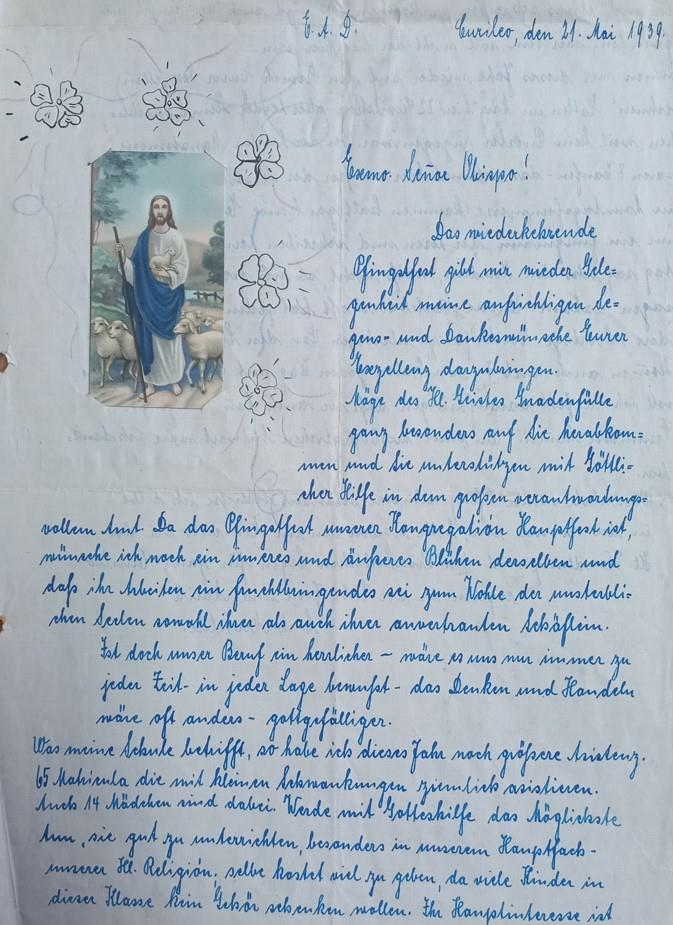 E. A. D.
Curileo, den 21. Mai 1939.
Exmo. Señor Obispo!
Das wiederkehrende
Pfingstfest gibt mir wieder Gele=
genheit meine aufrichtigen Se=
gens- und Dankeswünsche Eurer
Exzellenz darzubringen.
Möge des Hl. Geistes Gnadenfülle
ganz besonders auf Sie herabkom=
men und Sie unterstützen mit Göttli=
cher Hilfe in dem großen verantwortungs=
vollem Amt. Da das Pfingstfest unserer Kongregatión Hauptfest ist,
wünsche ich noch ein inneres und äußeres Blühen derselben und
daß ihr Arbeiten ein fruchtbringendes sei zum Wohle der unsterbli=
chen Seelen sowohl ihrer als auch ihrer anvertrauten Schäflein.
Ist doch unser Beruf ein herrlicher – wäre es uns nur immer zu
jeder Zeit - in jeder Lage bewußt - das Denken und Handeln
wäre oft anders - gottgefälliger.
Was meine Schule betrifft, so habe ich dieses Jahr noch größere Asistenz.
65 Matricula die mit kleinen Schwankungen ziemlich asistieren.
Auch 14 Mädchen sind dabei. Werde mit Gotteshilfe das Möglichste
tun, sie gut zu unterrichten, besonders in unserem Hauptfach -
unserer Hl. Religión, selbe kostet viel zu geben, da viele Kinder in
dieser Klasse kein Gehör schenken wollen. Ihr Hauptinteresse ist